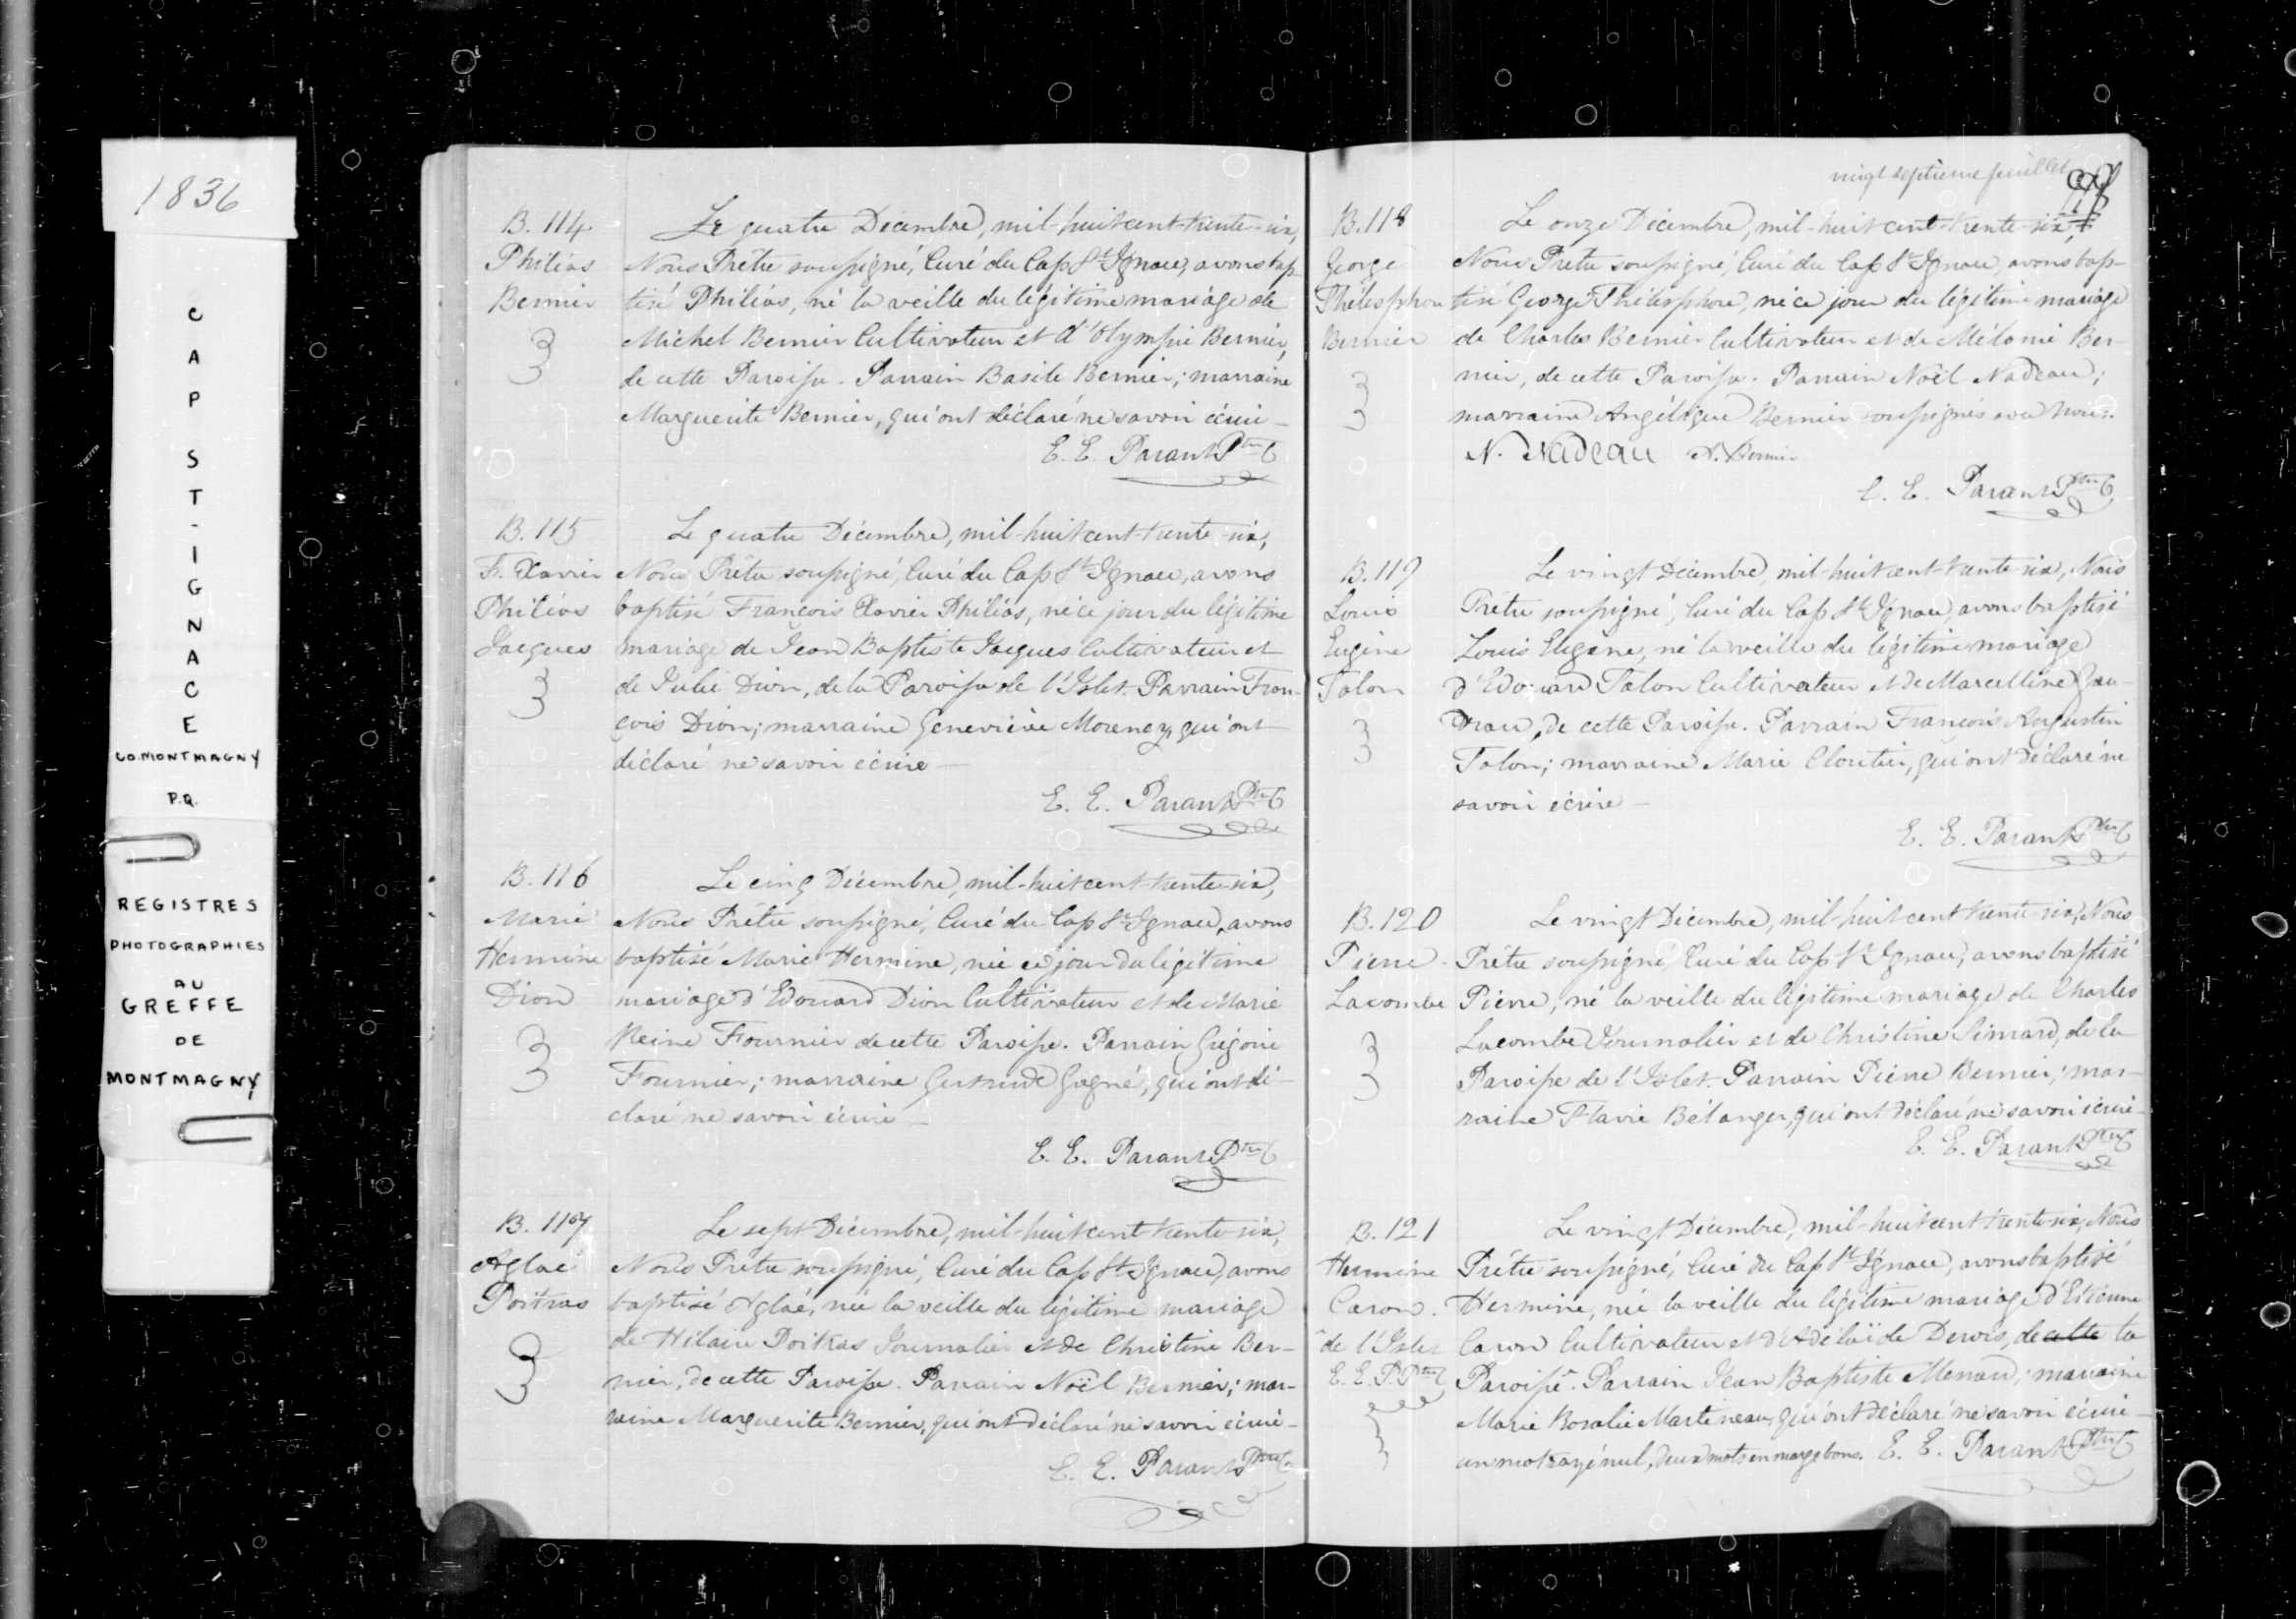 1836
CAP ST-IGNACE
CO. MONTMAGNY
P.Q.
REGISTRES
PHOTOGRAPHIES
AU
GREFFE
DE
MONTMAGNY
B. 114
Philéas
Bernier
Le quatre Decembre, mil-huit cent-trente-six,
Nous Prêtre soussigné, Curé du Cap St Ignace, avons bap-
tisé Philéas, né la veille du légitime mariage de
Michel Bernier Cultivateur et d'Olympie Bernier,
de cette Paroisse. Parrain Basile Bernier; marraine
Marguerite Bernier, qui ont déclaré ne savoir écrire
E. E. Parant Ptre C
B. 115
F. Xavier
Philéas
Jacques
Le quatre Décembre, mil-huit cent-trente-six,
Nous Prêtre soussigné, Curé du Cap St Ignace, avons
baptisé François Xavier Philéas, né ce jour du légitime
mariage de Jean Baptiste Jacques Cultivateur et
de Julie Dion, de la Paroisse de l'Islet. Parrain Fran-
çois Dion; marraine Geneviève Morency, qui ont
déclaré ne savoir écrire
E. E. Parant Ptre C
B. 116
Marie
Hermine
Dion
Le cinq Décembre, mil-huit cent-trente-six,
Nous Prêtre soussigné, Curé du Cap St Ignace, avons
baptisé Marie Hermine, née ce jour du légitime
mariage d'Edouard Dion Cultivateur et de Marie
Reine Fournier de cette Paroisse. Parrain Grégoire
Fournier; marraine Gertrude Gagné, qui ont dé-
claré ne savoir écrire
E. E. Parant Ptre C
B. 117
Aglaé
Poitras
Le sept Décembre, mil-huit cent trente-six,
Nous Prêtre soussigné, Curé du Cap St Ignace, avons
baptisé Aglaé, née la veille du légitime mariage
de Hilaire Poitras Journalier et de Christine Ber-
nier, de cette Paroisse. Parrain Noël Bernier; mar-
raine Marguerite Bernier, qui ont déclaré ne savoir écrire
E. E. Parant Ptre C
vingt septième feuillet
B. 118
George
Thélesphore
Bernier
Le onze Décembre, mil-huit cent-trente-six,
Nous Prêtre soussigné, Curé du Cap St Ignace, avons bap-
tisé George Thélesphore, né ce jour du légitime mariage
de Charles Bernier Cultivateur et de Mélonie Ber-
nier, de cette Paroisse. Parrain Noël Nadeau;
marraine Angélique Bernier soussignés avec Nous.
N. Nadeau A. Bernier
E. E. Parant Ptre C
B. 119
Louis
Eugène
Talon
Le vingt Décembre, mil-huit cent-trente-six, Nous
Prêtre soussigné, Curé du Cap St Ignace, avons baptisé
Louis Eugène, né la veille du légitime mariage
d'Edouard Talon Cultivateur et de Marcelline Gau-
drau, de cette Paroisse. Parrain François Augustin
Talon; marraine Marie Cloutier, qui ont déclaré ne
savoir écrire
E. E. Parant Ptre C
B. 120
Pierre
Lacombe
Le vingt Décembre, mil-huit cent trente-six, Nous
Prêtre soussigné, Curé du Cap St Ignace, avons baptisé
Pierre, né la veille du légitime mariage de Charles
Lacombe Journalier et de Christine Simard, de la
Paroisse de l'Islet. Parrain Pierre Bernier; mar-
raine Flavie Bélanger, qui ont déclaré ne savoir écrire
E. E. Parant Ptre C
B. 121
Hermine
Caron
^de l'Islet
E. E. P. Ptre C
Le vingt Décembre, mil-huit cent trente-six, Nous
Prêtre soussigné, Curé du Cap St Ignace, avons baptisé
Hermine, née la veille du légitime mariage d'Etienne
Caron Cultivateur et d'Adélaïde Derois, de cette la
Paroisse^. Parrain Jean Baptiste Menard; marraine
Marie Rosalie Martineau, qui ont déclaré ne savoir écrire
un mot rayé nul, deux mots en marge bons. E. E. Parant Ptre C